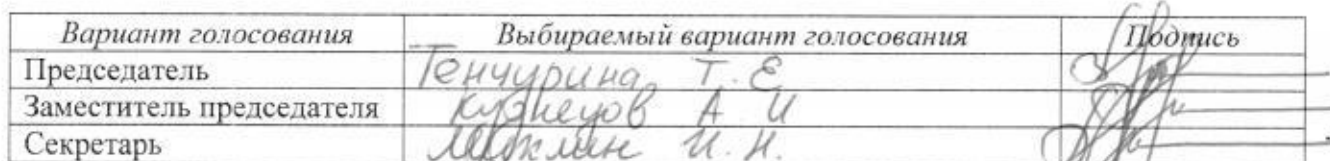 Вариант голосования Выбираемый вариант голосования Подпись
Председатель Тенчурина Т. Е
Заместитель председателя Кузнецов А И
Секретарь И. Н.